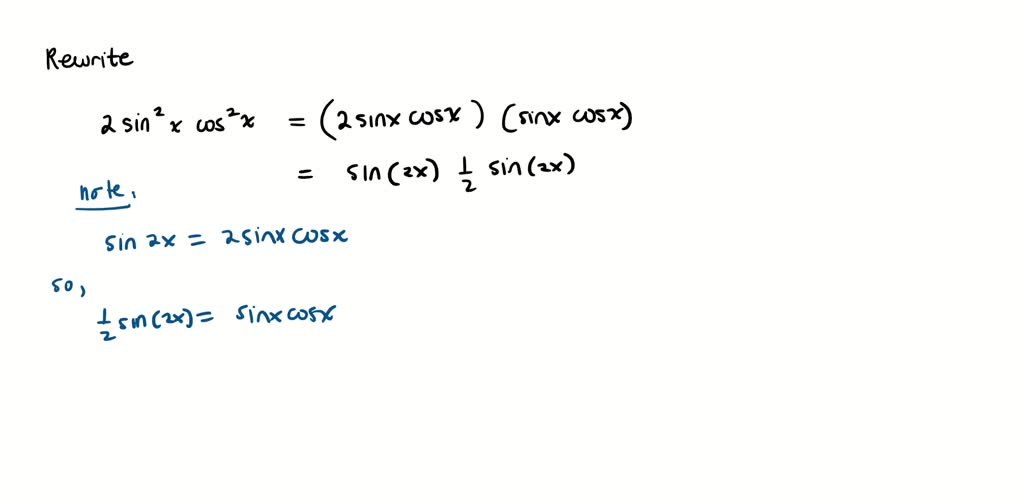 Rewrite
2 sin² x cos² x = (2 sinx cosx) (sinx cosx)
= sin(2x) 1/2 sin(2x)
note,
sin 2x = 2 sinx cosx
so,
1/2 sin(2x) = sinx cosx